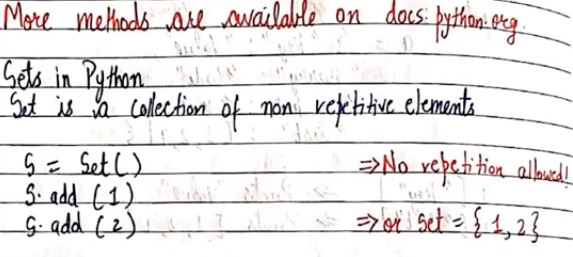 More methods are available on docs.python.org.
Sets in Python
Set is a collection of non repetitive elements
S = Set() ⇒ No repetition allowed!
S. add (1)
S. add (2) ⇒ or set = {1, 2}